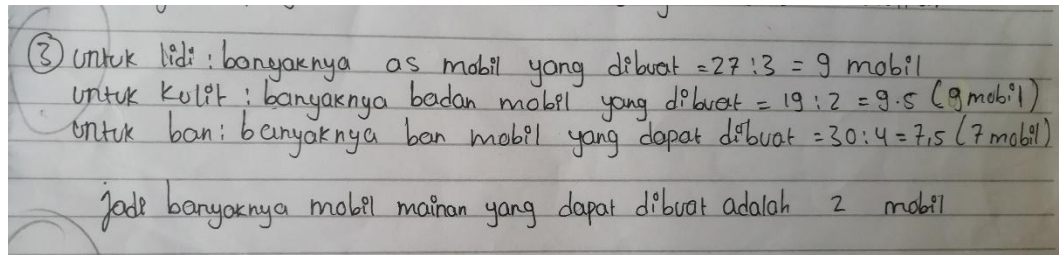 ③ untuk lidi : banyaknya as mobil yang dibuat = 27 : 3 = 9 mobil
untuk kulit : banyaknya badan mobil yang dibuat = 19 : 2 = 9.5 (9 mobil)
untuk ban : banyaknya ban mobil yang dapat dibuat = 30 : 4 = 7,5 (7 mobil)
jadi banyaknya mobil mainan yang dapat dibuat adalah 2 mobil